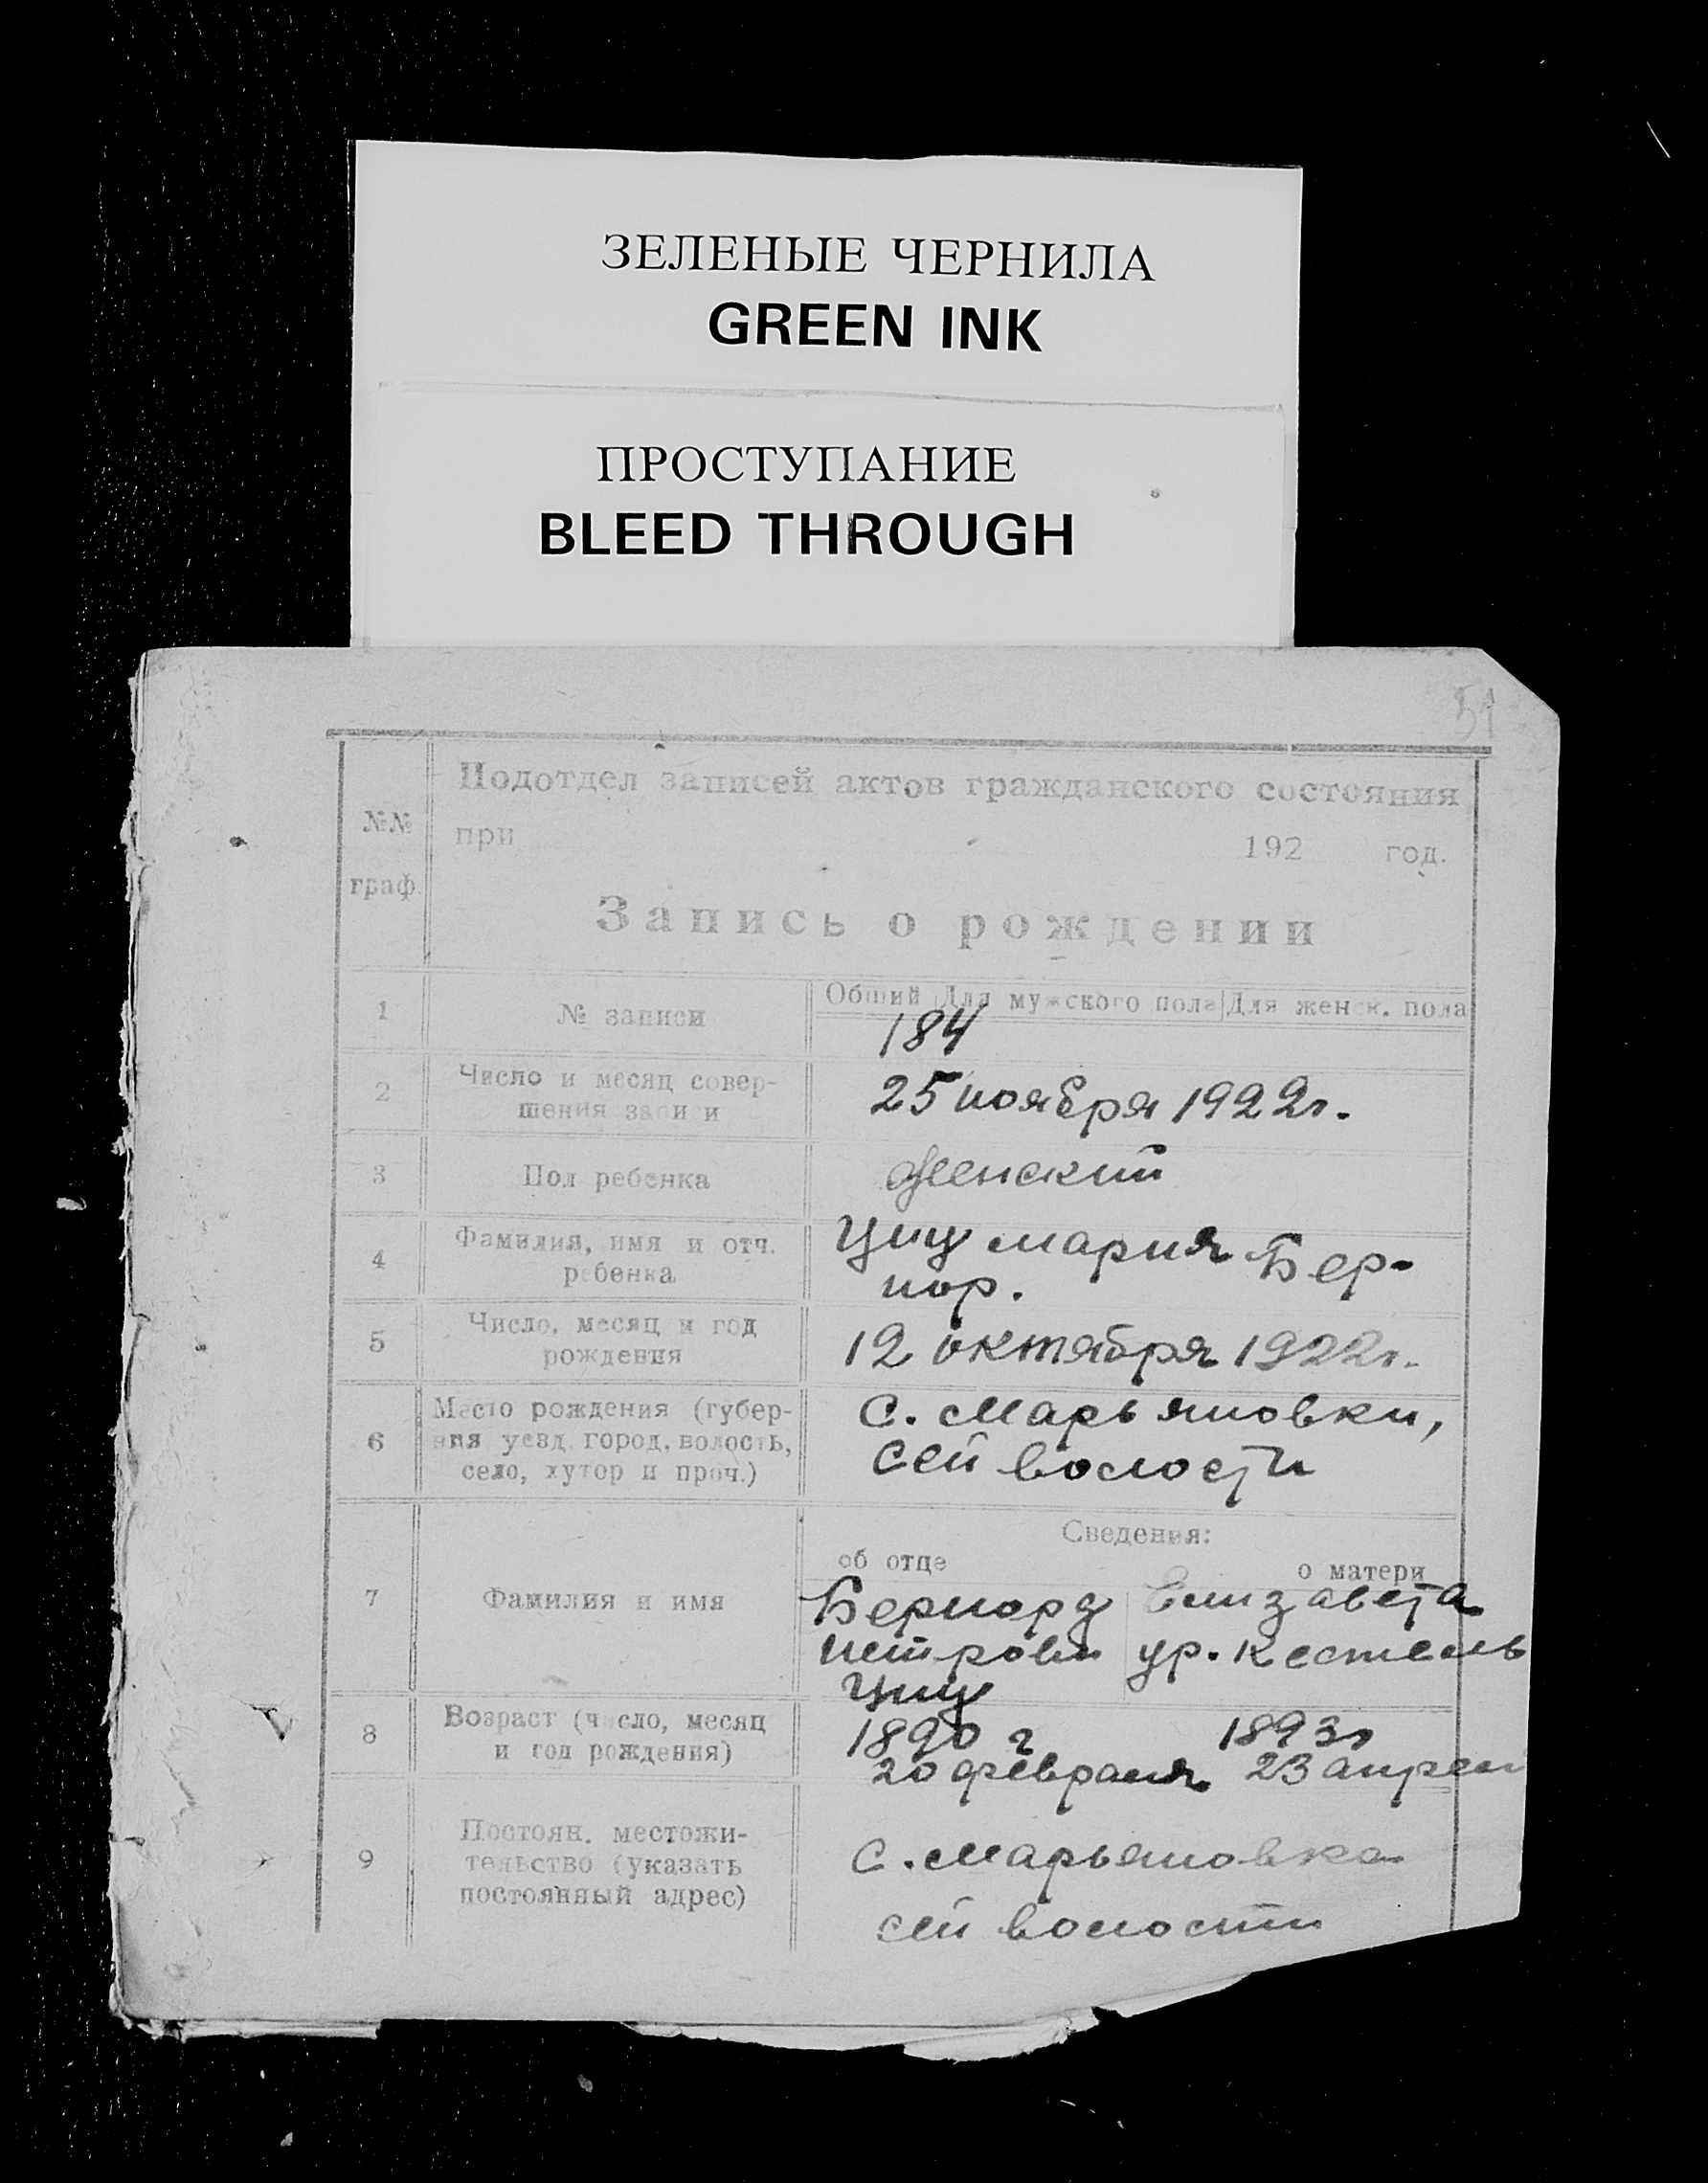 ЗЕЛЕНЫЕ ЧЕРНИЛА
GREEN INK
ПРОСТУПАНИЕ
BLEED THROUGH
51
№№ граф
Подотдел записей актов гражданского состояния
при 192 год.
Запись о рождении
Общий Для мужского пола Для женск. пола
1 № записи 184
2 Число и месяц совер-
шения записи
25 ноября 1922г.
3 Пол ребенка Женский
4 Фамилия, имя и отч.
ребенка
Циц Мария Бер-
нор.
5 Число, месяц и год
рождения
12 октября 1922г.
6 Место рождения (губер-
ния уезд, город, волость,
село, хутор и проч.)
с. Марьяновки,
сей волости
Сведения:
об отце о матери
7 Фамилия и имя
Бернорд Елизавета
Петрови ур. Кестель
Циц
8 Возраст (число, месяц
и год рождения)
1890 г 1893г
20 февраля 23 апрел
9 Постоян. местожи-
тельство (указать
постоянный адрес)
с. Марьяновка
сей волости
V